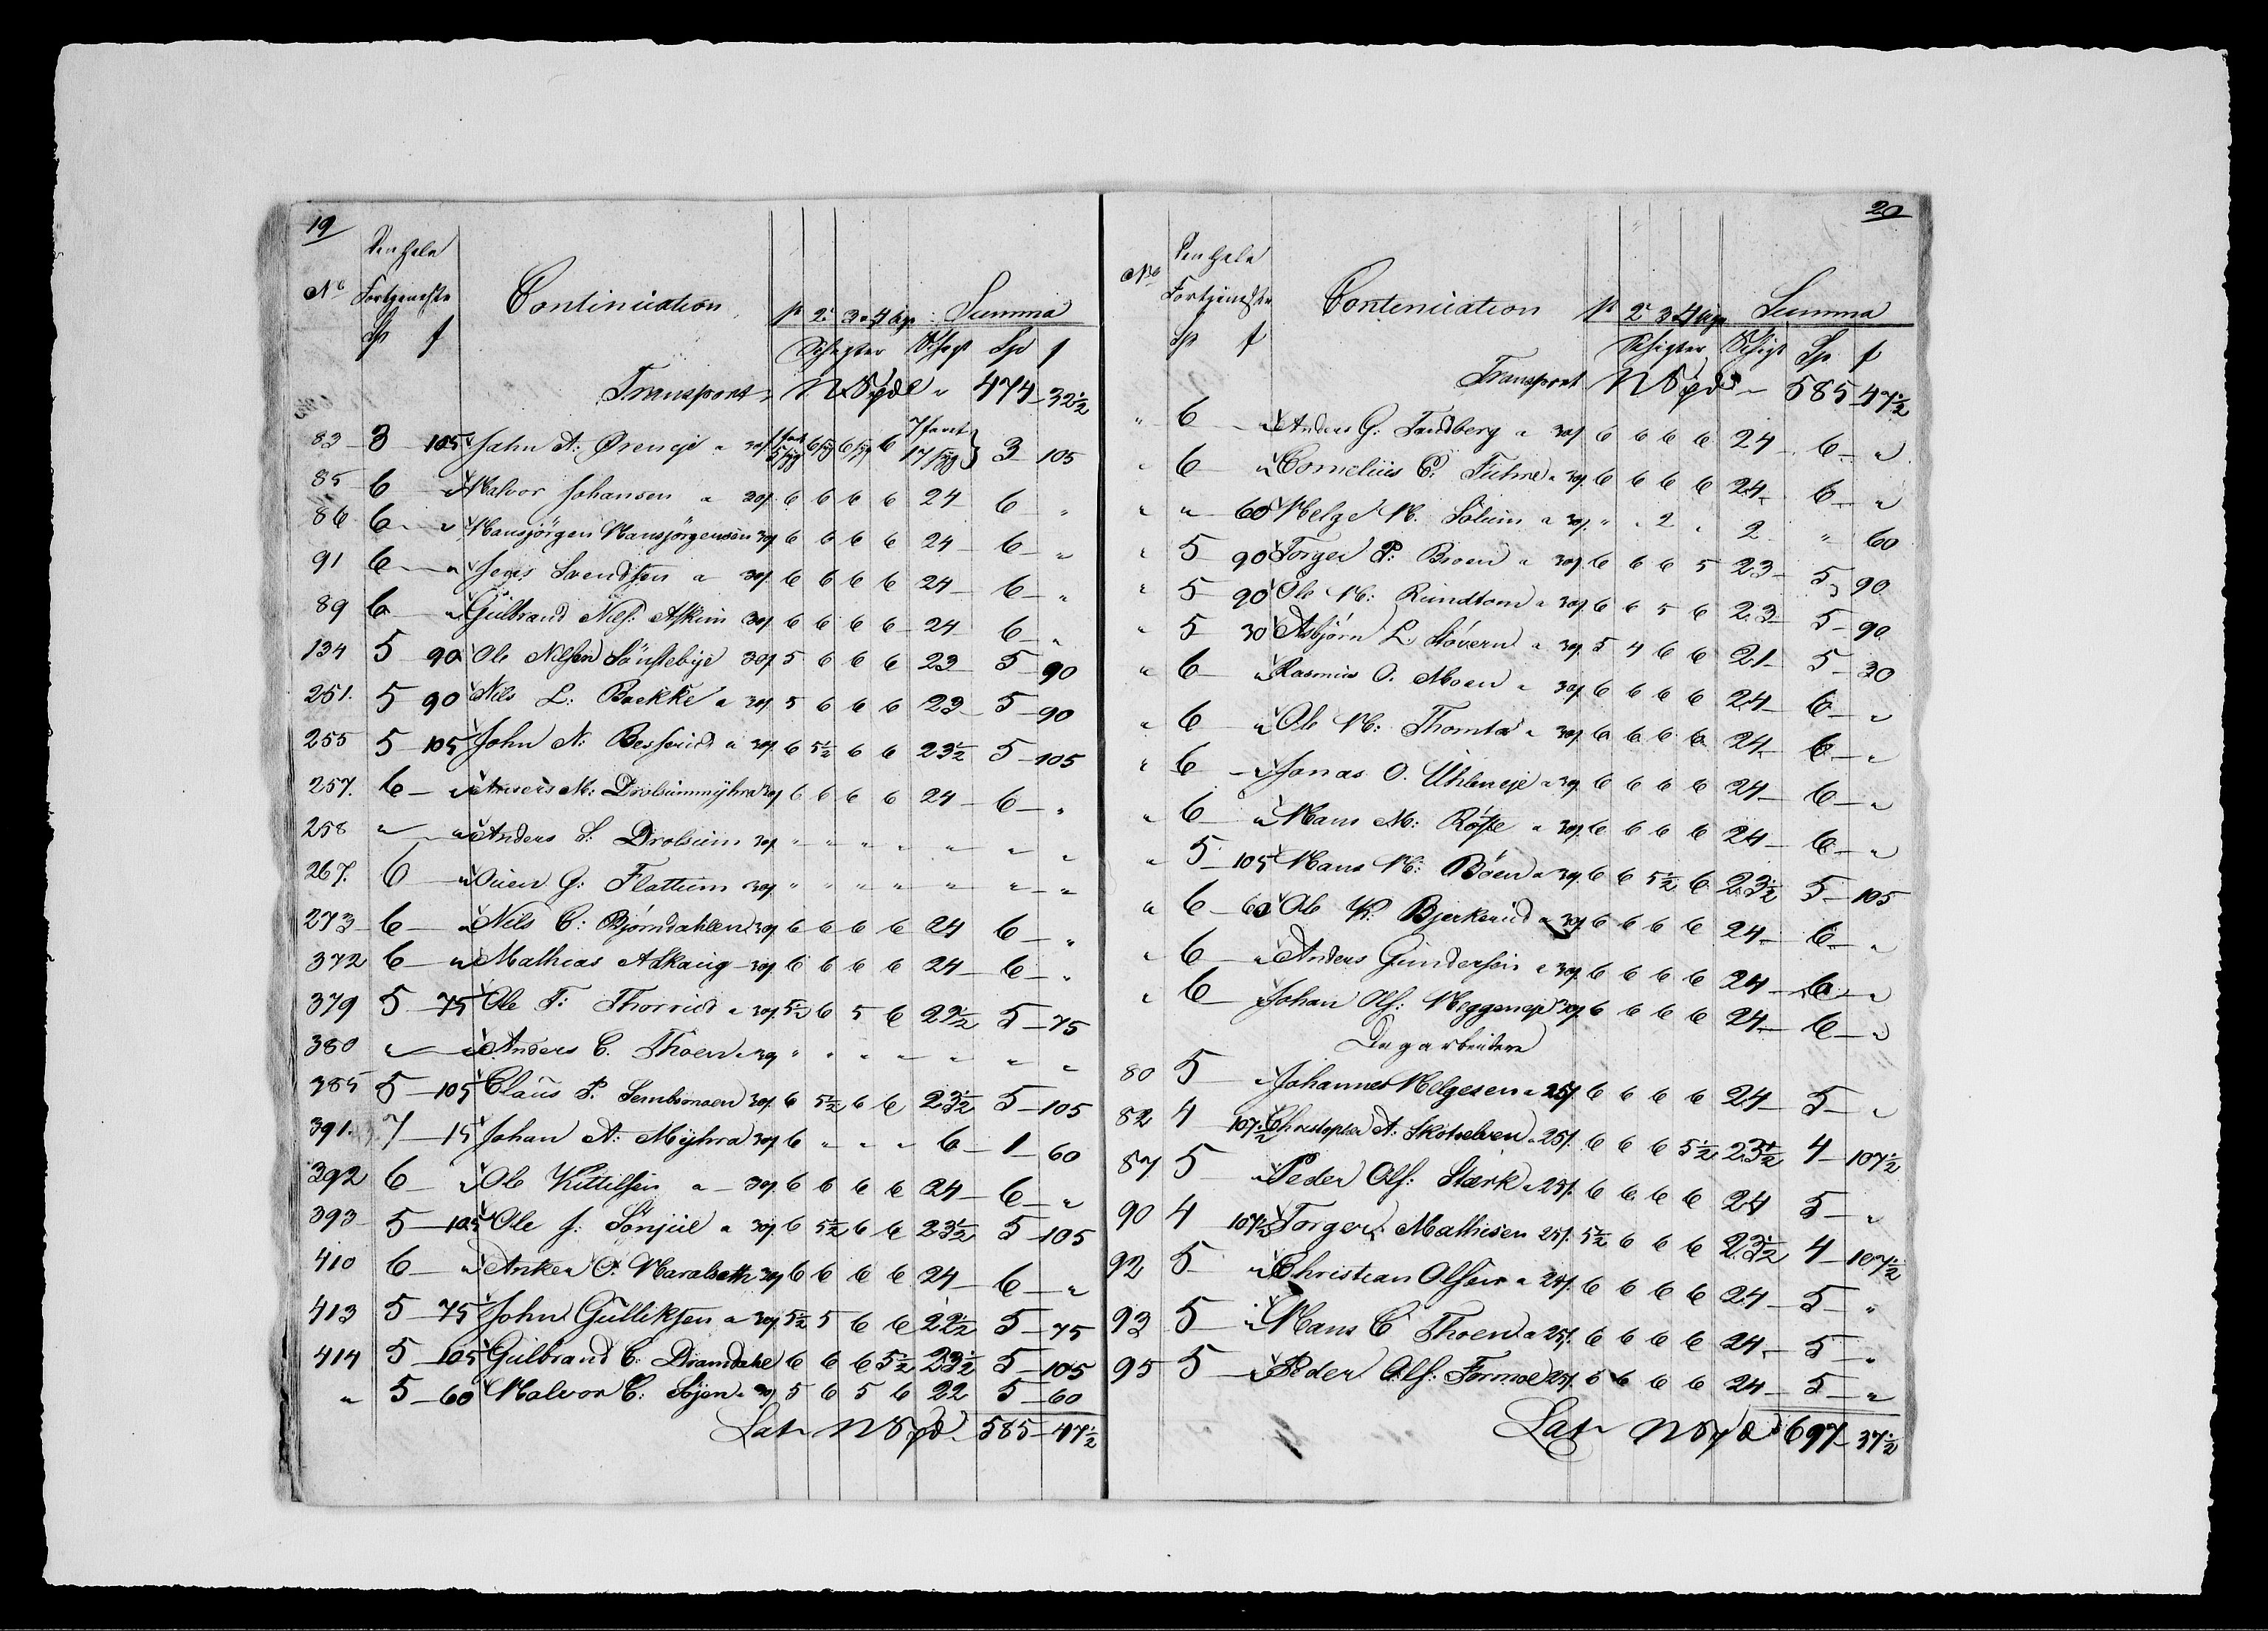 19
Den hele
No Fortjeneste Continuation 1e 2e 3e 4 Uge Summa
Sp ſ Schigter Schigt Sp ſ
Transport, N. Spdl " 474 - 32½
83 - 3 - 105 John A: Ørenge a 30ſ 6 3 - 105
85 - 6 - " Halvor Johansen a 30ſ 6 6 6 6 24 - 6 - "
86 6 - " Hansjörgen Hansjörgensen 30ſ 6 6 6 6 24 - 6 - "
91 6 - " Jens Svendsen a 30ſ 6 6 6 6 24 - 6 - "
89 6 - " Gulbrand Nils: Askim 30ſ 6 6 6 6 24 - 6 - "
134 5 - 90 Ole Nilsen Sönstebye 30ſ 5 6 6 6 23 - 5 - 90
251. 5 90 Nils L: Baekke a 30ſ 5 6 6 6 23 - 5 - 90
255 5 - 105 John N: Besserud a 30ſ 6 5½ 6 6 23½ 5 - 105
257. 6 - " M: Drolsummyhra 30ſ 6 6 6 6 24 - 6 - "
258 " - " Anders S: Drolsum 30ſ " " " " " " "
267. 6 - " G: Flattum 30ſ " " " " " " - "
273 - 6 - " Nils C: Bjørndahlen 30ſ 6 6 6 6 24 6 - "
372 6 - " Mathias Askaug - 30ſ 6 6 6 6 24 - 6 - "
379 5 - 75 Ole T: Thorrud a 30ſ 5½ 6 5 6 22½ 5 - 75
380 " - " Anders C. Thoen a 30ſ " " " " " " "
385 5 - 105 Claus P. 30ſ 6 5½ 6 6 23½ 5 - 105
391. 7 - 15 Johan A: Myhra 30ſ 6 " " " 6 - 1 - 60
392 6 - " Ole Kittilsen a - 30ſ 6 6 6 6 24 - 6 - "
393 - 5 - 105 Ole J: Sönjul a 30ſ 6 5½ 6 6 23½ 5 - 105
410 6 - " Anker O: Haralseth 30ſ 6 6 6 6 24 - 6 - "
413 5 - 75 John Gulliksen a 30ſ 5½ 5 6 6 22½ 5 - 75
414 5 - 105 Gulbrand C: Dramdahl 6 6 6 5½ 23½ 5 - 105
" 5 - 60 Halvor C: a 30ſ 5 6 5 6 22 5 - 60
Lat - N Spd. 585 - 47½
20
Den hele
No Fortjeneste Contenuation 1e 2e 3 4 Uge Summa
Sp ſ Schigter Schigt Sp ſ
Transport N Spd - 585 - 47½
" 6 - " Anders G: Sandberg a 30ſ 6 6 6 6 24 - 6 - "
" 6 - " Cornelius C: Fuhre a 30ſ 6 6 6 6 24 - 6 - "
" " - 60 Helge H. Solum a 30ſ. " " 2 " 2 " 60
" 5 - 90 Torger P: Broen a 30ſ 6 6 6 5 23 - 5 90
" 5 90 Ole H: Rundtom a 30ſ 6 6 5 6 23 - 5 - 90
" 5 30 Asbjörn L. Stövern a 30ſ 5 4 6 6 21 - 5 - 30
" 6 - " Rasmus O. Moen a 30ſ 6 6 6 6 24 - 6 - "
" 6 - " Ole H: Thomta a 30ſ 6 6 6 6 24 - 6 - "
" 6 - " Jonas O. Uhleneje a 30ſ 6 6 6 6 24 - 6 - "
" 6 - " Hans M: Röste a 30ſ 6 6 6 6 24 - 6 - "
" 5 - 105 Hans H: Böen a 30ſ 6 6 5½ 6 23½ 5 - 105
" 6 - 60 Ole K: Bjerkerud a 30ſ 6 6 6 6 24 - 6 - "
" 6 - " Anders Gundersen a 30ſ 6 6 6 6 24 - 6 - "
" 6 - " Johan Ols: Heggeneje 30ſ 6 6 6 6 24 - 6 - "
Dagarbeidere
80 5 " Johannes Helgesen a 25ſ 6 6 6 6 24 - 5 - "
82 4 107½ Christopher A: Skotselven a 25ſ. 6 6 6 5½ 23½ 4 - 107½
87 5 - " Peder Ols: Stærk a 25ſ. 6 6 6 6 24 5 - "
90 4 107½ Torger Mathisen 25ſ 5½ 6 6 6 23½ 4 - 107½
92 5 - " Christian Olsen a 25ſ. 6 6 6 6 24 - 5 - "
93 5 - " Hans C Thoen a 25ſ. 6 6 6 6 24 - 5 - "
95 5 - " Peder Ols: Formoe 25ſ. 6 6 6 6 24 - 5 - "
Lat - N Spd 697 - 37½